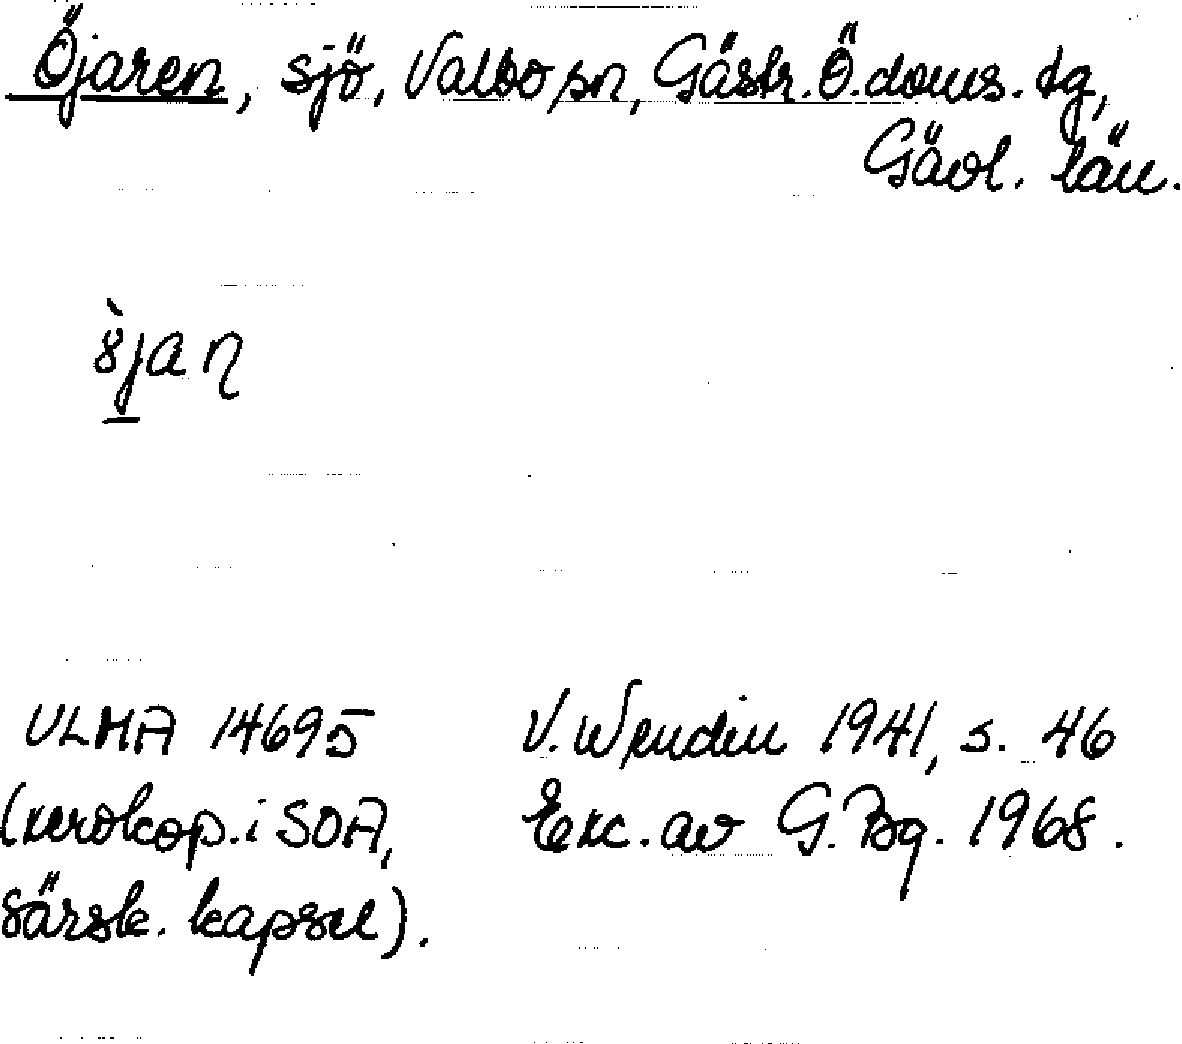 Öjaren, sjö, Valbo sn, Gästr. Ö. doms. tg,
Gävl. län.
ULMA 14695
(xerokop. i SOA,
särsk. kapsel).
V. Wendin 1941, s. 46
Exc. av G. Bg. 1968.